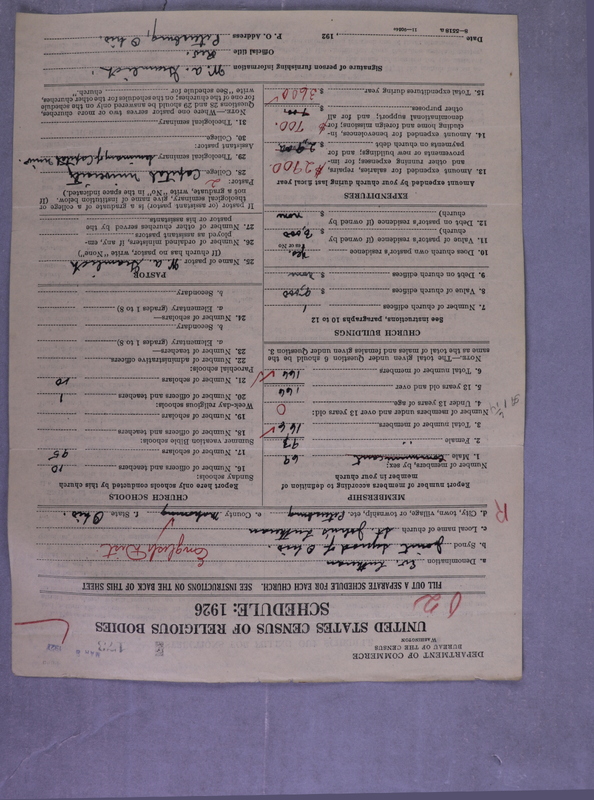 DEPARTMENT OF COMMERCE
BUREAU OF THE CENSUS
WASHINGTON
UNITED STATES CENSUS OF RELIGIOUS BODIES
SCHEDULE: 1926
FILL OUT A SEPARATE SCHEDULE FOR EACH CHURCH. SEE INSTRUCTIONS ON THE BACK OF THIS SHEET
a. Denomination Ev. Lutheran
b. Synod Joint Synod of Ohio. English Dist.
c. Local name of church St. Johns Lutheran
d. City, town, village, or township, etc. Petersburg e. County Mahoning f. State Ohio.
MEMBERSHIP
Report number of members according to definition of
member in your church
Number of members, by sex:
1. Male Communicant 69
2. Female " 97
3. Total number of members 166
Number of members under and over 13 years old:
4. Under 13 years of age 0
5. 13 years old and over 166
6. Total number of members 166
NOTE.—The total given under Question 6 should be the
same as the total of males and females given under Question 3.
CHURCH BUILDINGS
See instructions, paragraphs 10 to 12
7. Number of church edifices 1
8. Value of church edifices $
9. Debt on church edifices $ none
10. Does church own pastor's residence Yes
Yes or No
11. Value of pastor's residence (if owned by
church) $
12. Debt on pastor's residence (if owned by
church) $ none
EXPENDITURES
Amount expended by your church during last fiscal year
13. Amount expended for salaries, repairs,
and other running expenses; for im-
provements or new building; and for
payments on church debt $ 2700
14. Amount expended for benevolences, in-
cluding home and foreign missions; for
denominational support; and for all
other purposes $ 700.
15. Total expenditures during year $ 3600
CHURCH SCHOOLS
Report here only church schools conducted by this church
Sunday schools:
16. Number of officers and teachers 10
17. Number of scholars 95
Summer vacation Bible schools:
18. Number of officers and teachers
19. Number of scholars
Week-day religious schools:
20. Number of officers and teachers 1
21. Number of scholars 10
Parochial schools:
22. Number of administrative officers
23. Number of teachers—
a. Elementary (grades 1 to 8)
b. Secondary
24. Number of scholars—
a. Elementary (grades 1 to 8)
b. Secondary
PASTOR
25. Name of pastor
(If church has no pastor, write "None")
26. Number of ordained ministers, if any, em-
ployed as assistant pastors
27. Number of other churches served by the
pastor or his assistants
If pastor (or assistant pastor) is a graduate of a college or
theological seminary, give name of institution below. (If
not a graduate, write "No" in the space indicated.)
Pastor: 2
28. College Capital University
29. Theological seminary Seminary of Capital Univ.
Assistant pastor:
30. College
31. Theological seminary
NOTE.—Where one pastor serves two or more churches,
Questions 28 and 29 should be answered only on the schedule
for one of the churches; on the schedules for the other churches,
write "See schedule for church."
Signature of person furnishing information
Official title Pres.
Date 192 P. O. Address Petersburg, Ohio.